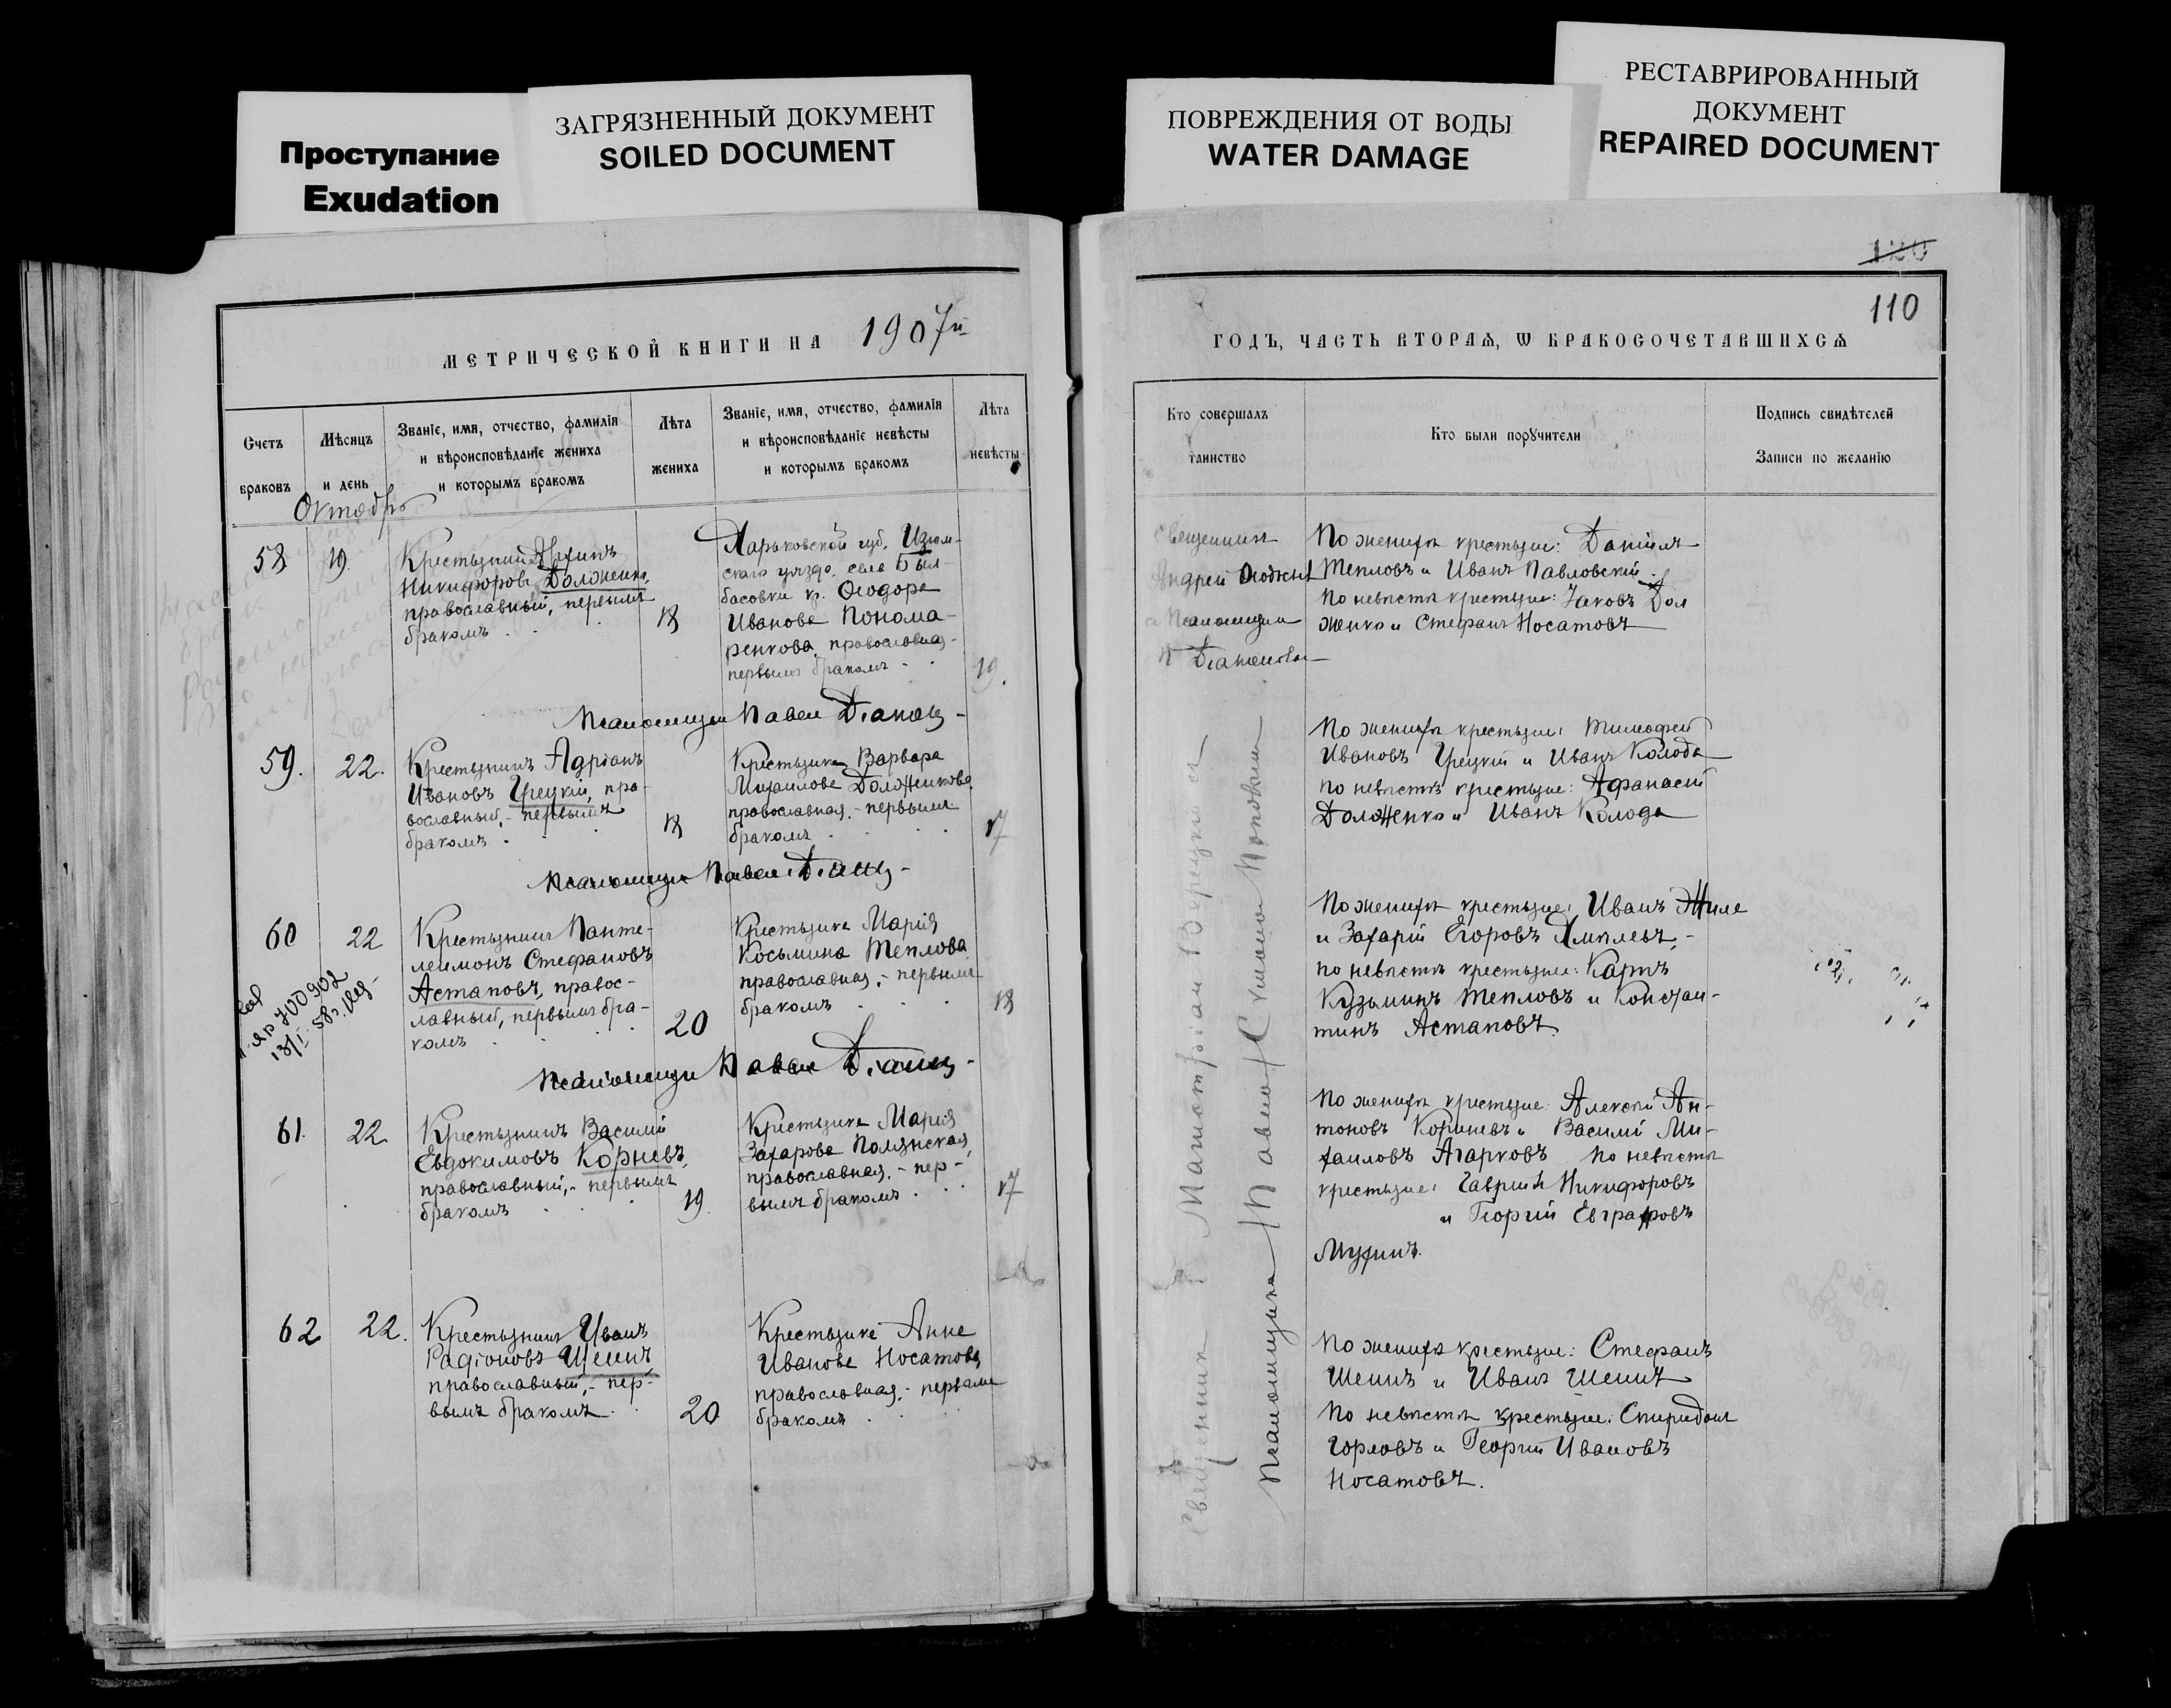 Проступание
Exudation
ЗАГРЯЗНЕННЫЙ ДОКУМЕНТ
SOILED DOCUMENT
ПОВРЕЖДЕНИЯ ОТ ВОДЫ
WATER DAMAGE
РЕСТАВРИРОВАННЫЙ
ДОКУМЕНТ
REPAIRED DOCUMENT
МЕТРИЧЕСКОЙ КНИГИ НА 1907й
Счетъ
браковъ
Мѣсяцъ
и день
Званіе, имя, отчество, фамилія
и вѣроисповѣданіе жениха
и которымъ бракомъ
Лѣта
жениха
Званіе, имя, отчество, фамилія
и вѣроисповѣданіе невѣсты
и которымъ бракомъ
Лѣта
невѣсты
Октябрь
58
19.
Крестьянинъ
Никифоровъ Долженко,
православный, первымъ
бракомъ
18
Харьковской губ. Изюм-
скаго уѣзда, села Был-
басовки кр. Ѳеодора
Иванова Понома-
ренкова, православная
первымъ бракомъ
19.
Псаломщик Павел
59.
22.
Крестьянинъ Адріанъ
Ивановъ Грецкій, пра-
вославный, - первымъ
бракомъ
18
Крестьянка Варвара
Михаилова Долженкова,
православная, - первымъ
бракомъ
17
Псаломщик Павел
60
22
Крестьянинъ Панте-
леимонъ Стефановъ
Астаповъ, правос-
лавный, первымъ бра-
комъ
20
Крестьянка Марія
Косьмина Теплова
православная, - первымъ
бракомъ
18
700902
Псаломщик Павел
61.
22
Крестьянинъ Василій
Евдокимовъ Корневъ,
православный, - первымъ
бракомъ
19.
Крестьянка Марія
Захарова Полянская,
православная, - пер-
вымъ бракомъ
17
62
22.
Крестьянинъ Иванъ
Радіоновъ Шеинъ
православный, - пер-
вымъ бракомъ
20
Крестьянка Анна
Иванова Носатова,
православная, - первымъ
бракомъ
120
110
ГОДЪ, ЧАСТЬ ВТОРАЯ, Ѡ БРАКОСОЧЕТАВШИХСЯ
Кто совершалъ
таинство
Кто были поручители
Подпись свидѣтелей
Записи по желанію
Священник
Андрей
и Псаломщик
По женихѣ крестьяне: Даніилъ
Тепловъ и Иванъ Павловскій
По невѣстѣ крестьяне: Іаковъ Дол
женко и Стефанъ Носатовъ
По женихѣ крестьяне: Тимофей
Ивановъ Грецкій и Иванъ Колода
по невѣстѣ крестьяне: Афанасій
Долженко и Иванъ Колода
По женихѣ крестьяне: Иванъ
и Захарій Егоровъ
по невѣстѣ крестьяне: Карпъ
Кузьминъ Тепловъ и Констан-
тинъ Астаповъ.
По женихѣ крестьяне: Алексѣй Ан-
тоновъ и Василій Ми-
хаиловъ Агарковъ По невѣстѣ
крестьяне: Гавріилъ Никифоровъ
и Георгій Евграфовъ
Мухинъ.
По женихѣ крестьяне: Стефанъ
Шеинъ и Иванъ Шеинъ
По невѣстѣ крестьяне: Спиридонъ
Горловъ и Георгій Ивановъ
Носатовъ.
Священник
Псаломщик Павел